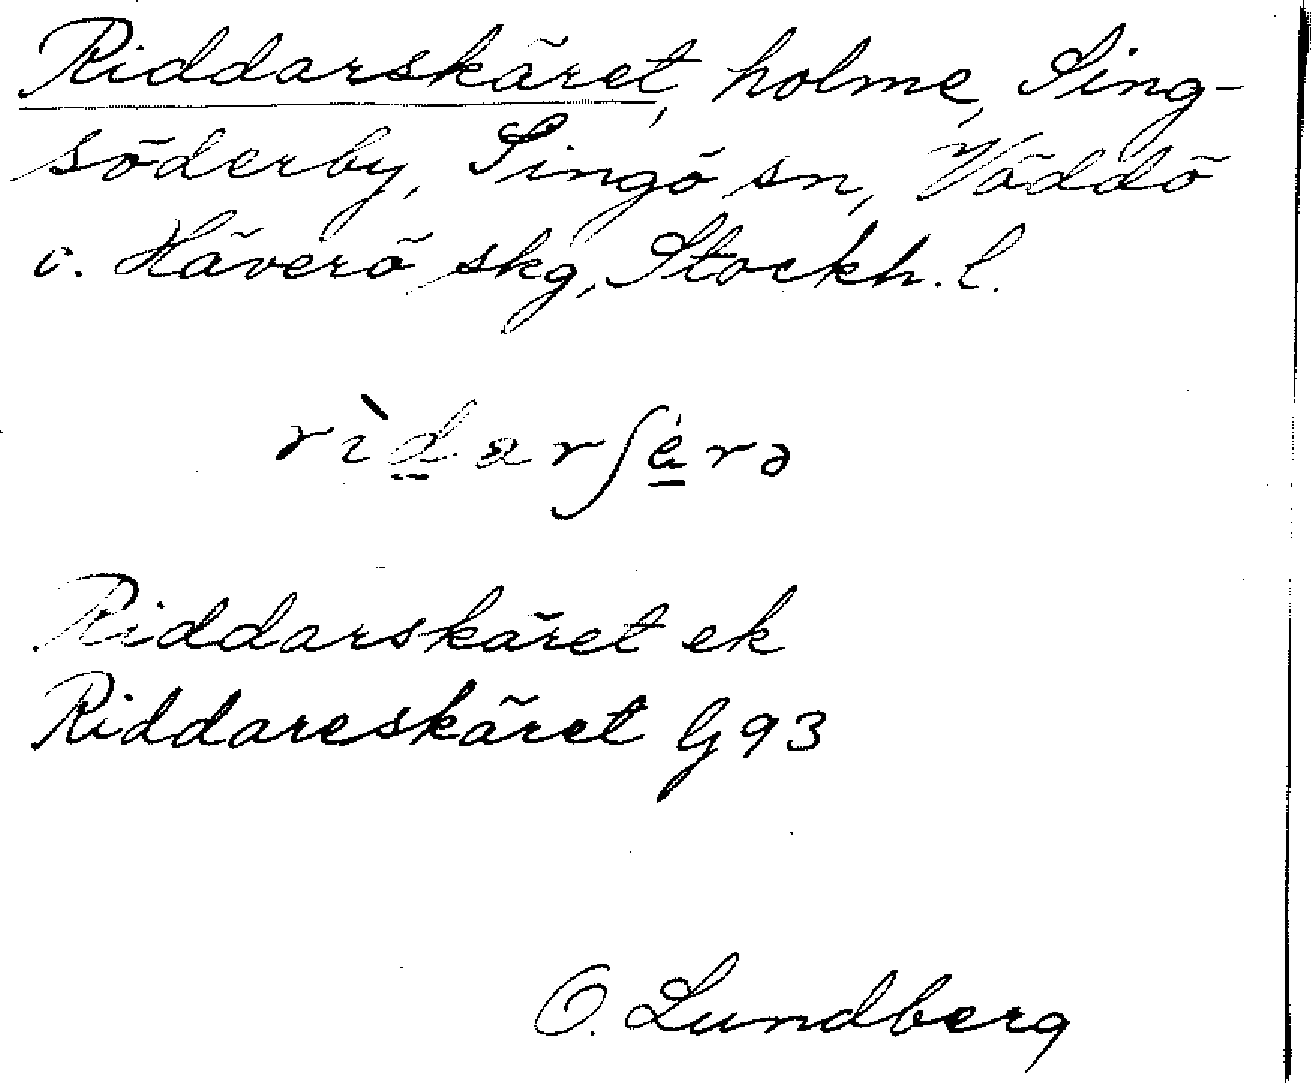 Riddarskäret, holme, Sing-
söderby, Singö sn, Väddö
o. Häverö skg, Stockh. l.
rìdarʃèrə
Riddarskäret ek
Riddareskäret G 93
O. Lundberg